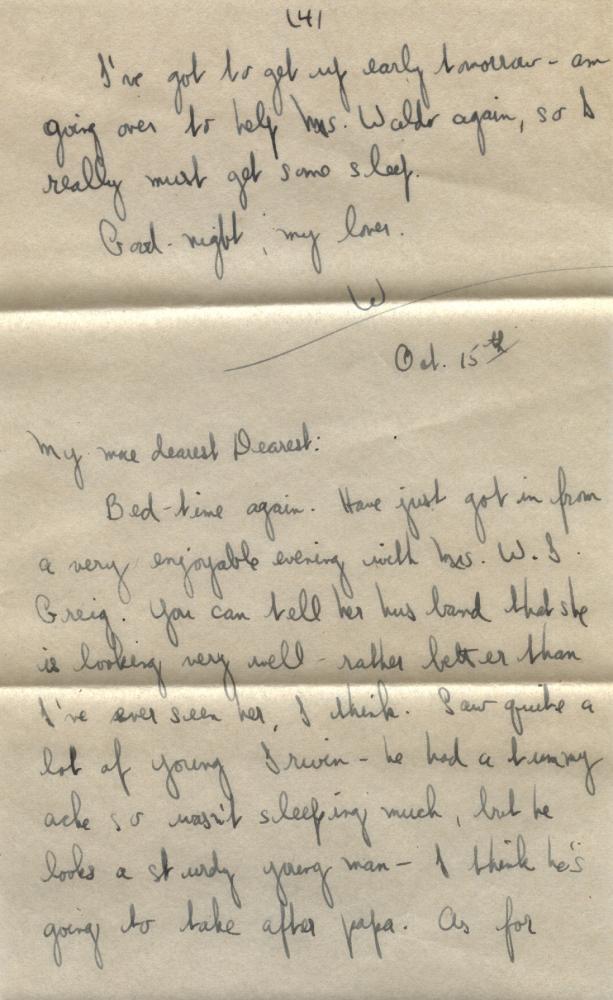 (4)
I've got to get up early tomorrow - am
going over to help Mrs. Waldo again, so I
really must get some sleep.
Good-night, my lover.
W
Oct. 15th
My dearest Dearest:
Bed-time again. Have just got in from
a very enjoyable evening with Mrs. W. I.
Greig. You can tell her husband that she
is looking very well - rather better than
I've ever seen her, I think. Saw quite a
lot of young Irwin - he had a tummy
ache so wasn't sleeping much, but he
looks a sturdy young man - I think he's
going to take after papa. As for